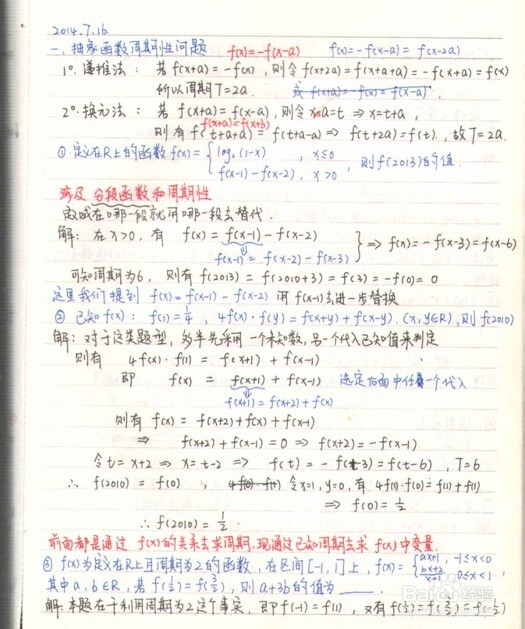 2014.7.16
一、抽象函数周期性问题 f(x)=-f(x-a) f(x)=-f(x-a)=f(x-2a)
1°. 递推法：若f(x+a)=-f(x)，则令f(x+2a)=f(x+a+a)=-f(x+a)=f(x)
所以周期T=2a. 或f(x+a)=-f(x)=f(x-a)
2°. 换元法：若f(x+a)=f(x-a)，则令x-a=t⇒x=t+a，
f(x+a)=f(x+b)
则有f(t+a+a)=f(t+a-a)⇒f(t+2a)=f(t)，故T=2a.
①定义在R上的函数f(x)={log₂(1-x)，x≤0
f(x-1)-f(x-2)，x>0，则f(2013)的值
涉及分段函数和周期性
数域在哪一段就用哪一段去替代.
解：在x>0，有 f(x)=f(x-1)-f(x-2)
f(x-1)=f(x-2)-f(x-3) }⇒f(x)=-f(x-3)=f(x-6)
可知周期为6，则有f(2013)=f(2010+3)=f(3)=-f(0)=0
这里我们提到 f(x)=f(x-1)-f(x-2) 用f(x-1)去进一步替换
②已知f(x)：f(1)=1/4，4f(x)·f(y)=f(x+y)+f(x-y)，(x,y∈R)，则f(2010)
解：对于这类题型，多半先采用一个未知数，另一个代入已知值来判定
则有 4f(x)·f(1)=f(x+1)+f(x-1)
即 f(x)=f(x+1)+f(x-1) 选定后面中任意一个代入
f(x+1)=f(x+2)+f(x)
则有 f(x)=f(x+2)+f(x)+f(x-1)
⇒ f(x+2)+f(x-1)=0⇒f(x+2)=-f(x-1)
令t=x+2⇒x=t-2⇒f(t)=-f(t-3)=f(t-6)，T=6
∴f(2010)=f(0)，4f(0)·f(1) 令x=1,y=0，有4f(1)·f(0)=f(1)+f(1)
⇒f(0)=1/2
∴f(2010)=1/2.
前面都是通过f(x)的关系去求周期，现通过已知周期去求f(x)中变量.
④f(x)为定义在R上且周期为2的函数，在区间[-1,1]上，f(x)={ax+1，-1≤x<0
(bx+2)/(x+1)，0≤x≤1，
其中a,b∈R，若f(1/2)=f(3/2)，则a+3b的值为____.
解：本题在于利用周期为2这个事实，即f(-1)=f(1)，又有f(1/2)=f(3/2)=f(-1/2)
Baidu经验